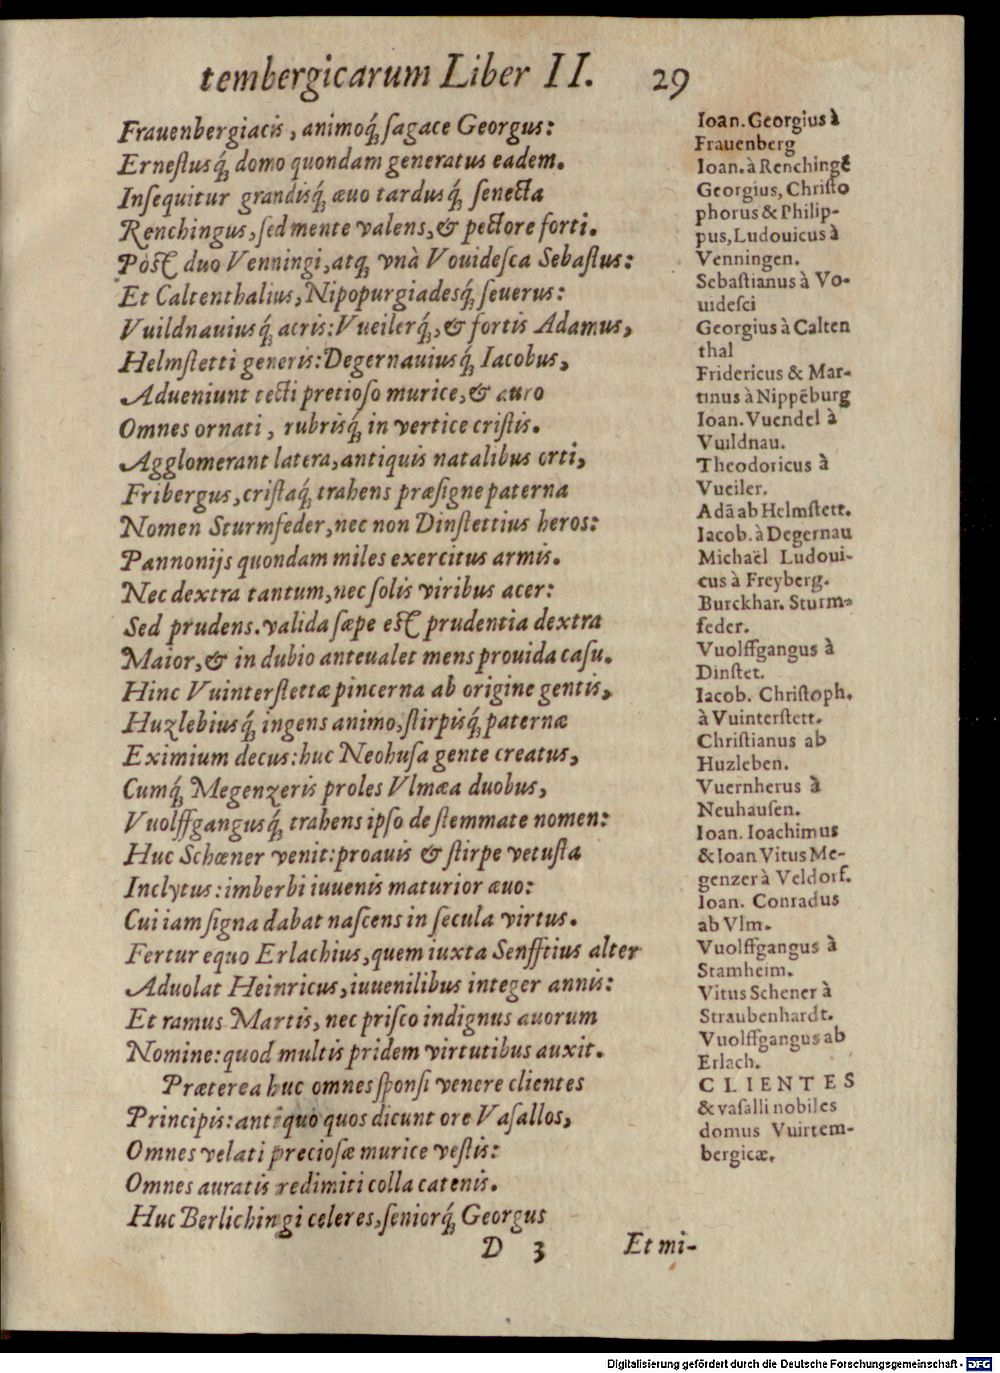 tembergicarum Liber II. 29
Frauenbergiacis, animoq́; ſagace Georgus:
Erneſtusq́; domo quondam generatus eadem.
Inſequitur grandisq́; æuo tardusq́; ſenecta
Renchingus, ſed mente valens, & pectore forti.
Pòſt duo Venningi, atq; vnà Vouideſca Sebaſtus:
Et Caltenthalius, Nipopurgiadesq́; ſeuerus:
Vuildnauiusq́; acris: Vueilerq́;, & fortis Adamus,
Helmſtetti generis: Degernauiusq́; Iacobus,
Adueniunt tecti pretioſo murice, & auro
Omnes ornati, rubrisq́; in vertice criſtis.
Agglomerant latera, antiquis natalibus orti,
Fribergus, criſtaq́; trahens præſigne paterna
Nomen Sturmfeder, nec non Dinſtettius heros:
Pannonijs quondam miles exercitus armis.
Nec dextra tantum, nec ſolis viribus acer:
Sed prudens. valida ſæpe eſt prudentia dextra
Maior, & in dubio anteualet mens prouida caſu.
Hinc Vuinterſtettæ pincerna ab origine gentis,
Huzlebiusq́; ingens animo, ſtirpisq́; paternæ
Eximium decus: huc Neohuſa gente creatus,
Cumq́; Megenzeris proles Vlmæa duobus,
Vuolffgangusq́; trahens ipſo de ſtemmate nomen:
Huc Schœner venit: proauis & ſtirpe vetuſta
Inclytus: imberbi iuuenis maturior æuo:
Cui iam ſigna dabat naſcens in ſecula virtus.
Fertur equo Erlachius, quem iuxta Senfftius alter
Aduolat Heinricus, iuuenilibus integer annis:
Et ramus Martis, nec priſco indignus auorum
Nomine: quod multis pridem virtutibus auxit.
Præterea huc omnes ſponſi venere clientes
Principis: antiquo quos dicunt ore Vaſallos,
Omnes velati precioſæ murice veſtis:
Omnes auratis redimiti colla catenis.
Huc Berlichingi celeres, ſeniorq́; Georgus
D 3 Et mi-
Ioan. Georgius à
Frauenberg
Ioan. à Renchingē
Georgius, Chriſto
phorus & Philip-
pus, Ludouicus à
Venningen.
Sebaſtianus à Vo-
uideſci
Georgius à Calten
thal
Fridericus & Mar-
tinus à Nippēburg
Ioan. Vuendel à
Vuildnau.
Theodoricus à
Vueiler.
Adā ab Helmſtett.
Iacob. à Degernau
Michaël Ludoui-
cus à Freyberg.
Burckhar. Sturm-
feder.
Vuolffgangus à
Dinſtet.
Iacob. Chriſtoph.
à Vuinterſtett.
Chriſtianus ab
Huzleben.
Vuernherus à
Neuhauſen.
Ioan. Ioachimus
& Ioan Vitus Me-
genzer à Veldorf.
Ioan. Conradus
ab Vlm.
Vuolffgangus à
Stamheim.
Vitus Schener à
Straubenhardt.
Vuolffgangus ab
Erlach.
CLIENTES
& vaſalli nobiles
domus Vuirtem-
bergicæ.
Digitalisierung gefördert durch die Deutsche Forschungsgemeinschaft - DFG